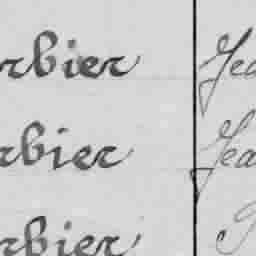 rbier Jea
rbier Jea
rbier